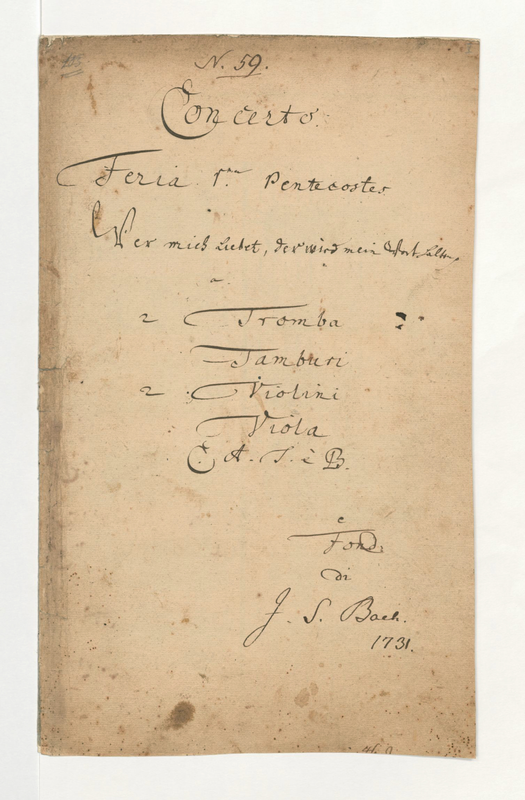 N. 59.
Concerto
Feria 1ma Pentecostes
Wer mich liebet, der wird mein Wort halten,
a
2 Tromba
Tamburi
2 Violini
Viola
C. A. T. è B.
e
Fond.
di
J. S. Bach.
1731.